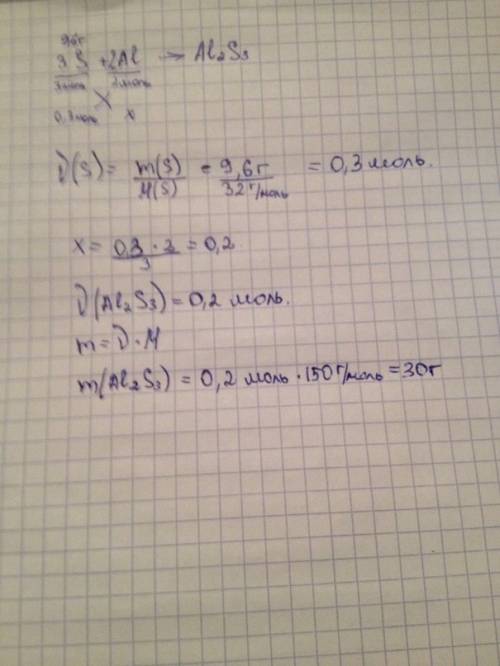 9,6г
3S + 2Al → Al₂S₃
3моль 2моль
0,3моль x
ν(S) = m(S)/M(S) = 9,6г/32г/моль = 0,3 моль.
x = 0,3 · 2/3 = 0,2
ν(Al₂S₃) = 0,2 моль.
m = ν · M
m(Al₂S₃) = 0,2 моль · 150 г/моль = 30г